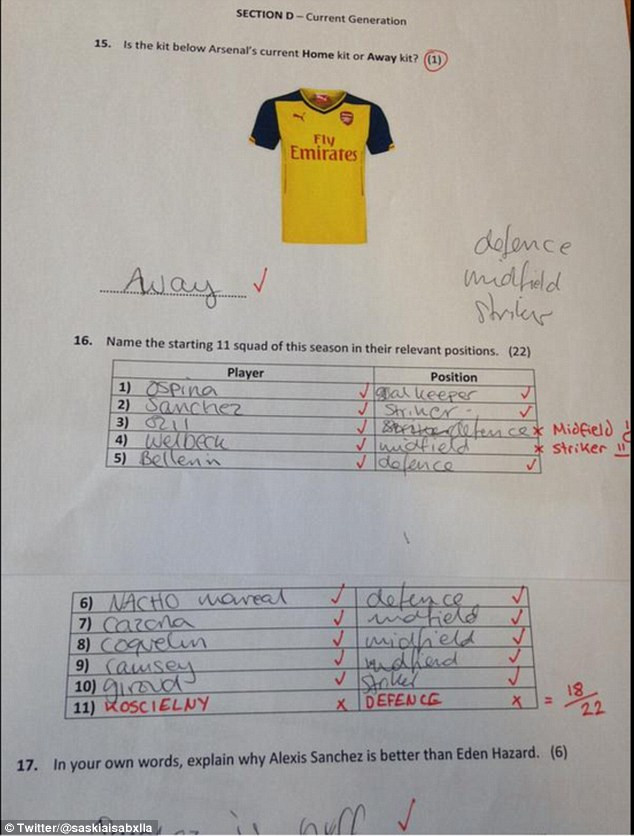 SECTION D – Current Generation
15. Is the kit below Arsenal's current Home kit or Away kit? (1)
Fly
Emirates
Away ✓
defence
midfield
striker
16. Name the starting 11 squad of this season in their relevant positions. (22)
Player Position
1) Ospina ✓ goalkeeper ✓
2) Sanchez ✓ Striker ✓
3) Ozil ✓ defence x Midfield
4) Welbeck ✓ midfield x striker
5) Bellerin ✓ defence ✓
6) NACHO monreal ✓ defence ✓
7) Cazorla ✓ midfield ✓
8) Coquelin ✓ midfield ✓
9) Ramsey ✓ midfield ✓
10) giroud ✓ striker ✓
11) KOSCIELNY x DEFENCE x = 18/22
17. In your own words, explain why Alexis Sanchez is better than Eden Hazard. (6)
is ✓
© Twitter/@saskialsabxlla